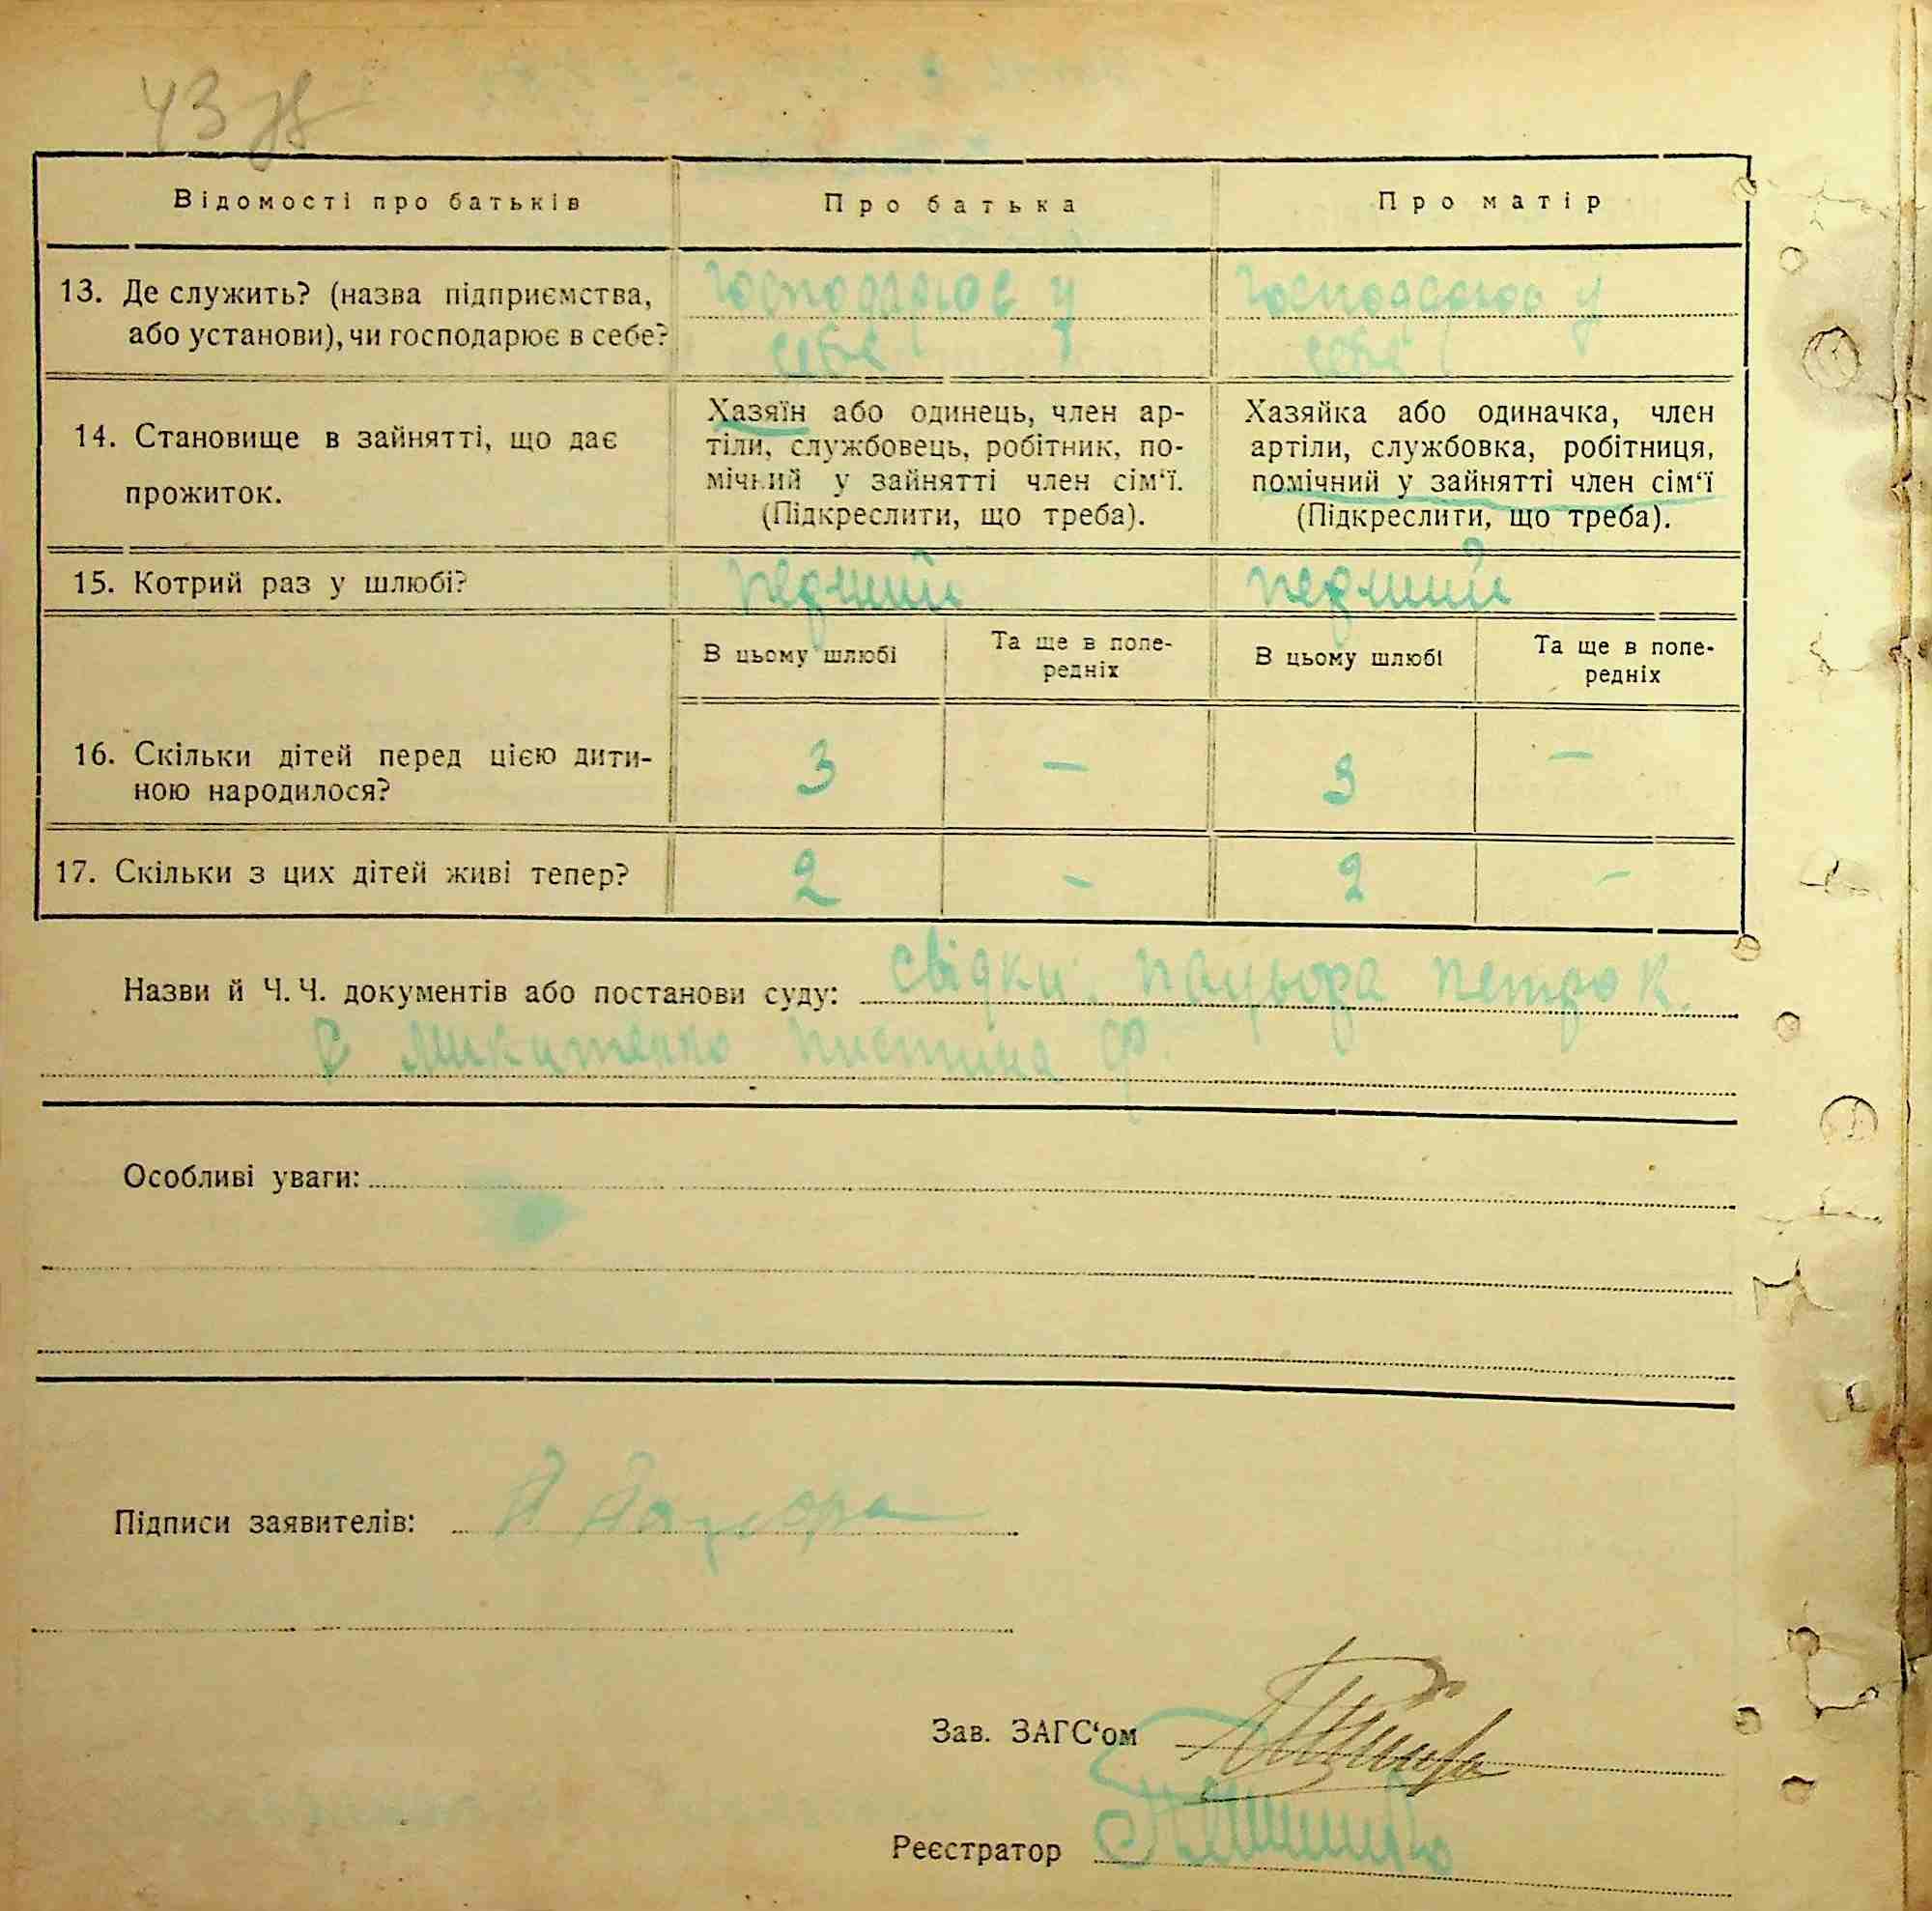 43
Відомості про батьків
Про батька
Про матір
13. Де служить? (назва підприємства,
або установи), чи господарює в себе?
господарює у
себе
господарює у
себе
14. Становище в зайнятті, що дає
прожиток.
Хазяїн або одинець, член ар-
тіли, службовець, робітник, по-
мічний у зайнятті член сім‘ї.
(Підкреслити, що треба).
Хазяйка або одиначка, член
артіли, службовка, робітниця,
помічний у зайнятті член сім‘ї
(Підкреслити, що треба).
15. Котрий раз у шлюбі?
перший
перший
В цьому шлюбі
Та ще в попе-
редніх
В цьому шлюбі
Та ще в попе-
редніх
16. Скільки дітей перед цією дити-
ною народилося?
3
—
3
—
17. Скільки з цих дітей живі тепер?
2
-
2
-
Назви й Ч. Ч. документів або постанови суду: свідки: Пацьора Петро К.
Микитенко Ф.
Особливі уваги:
Підписи заявителів: Пацьора
Зав. ЗАГС‘ом
Реєстратор